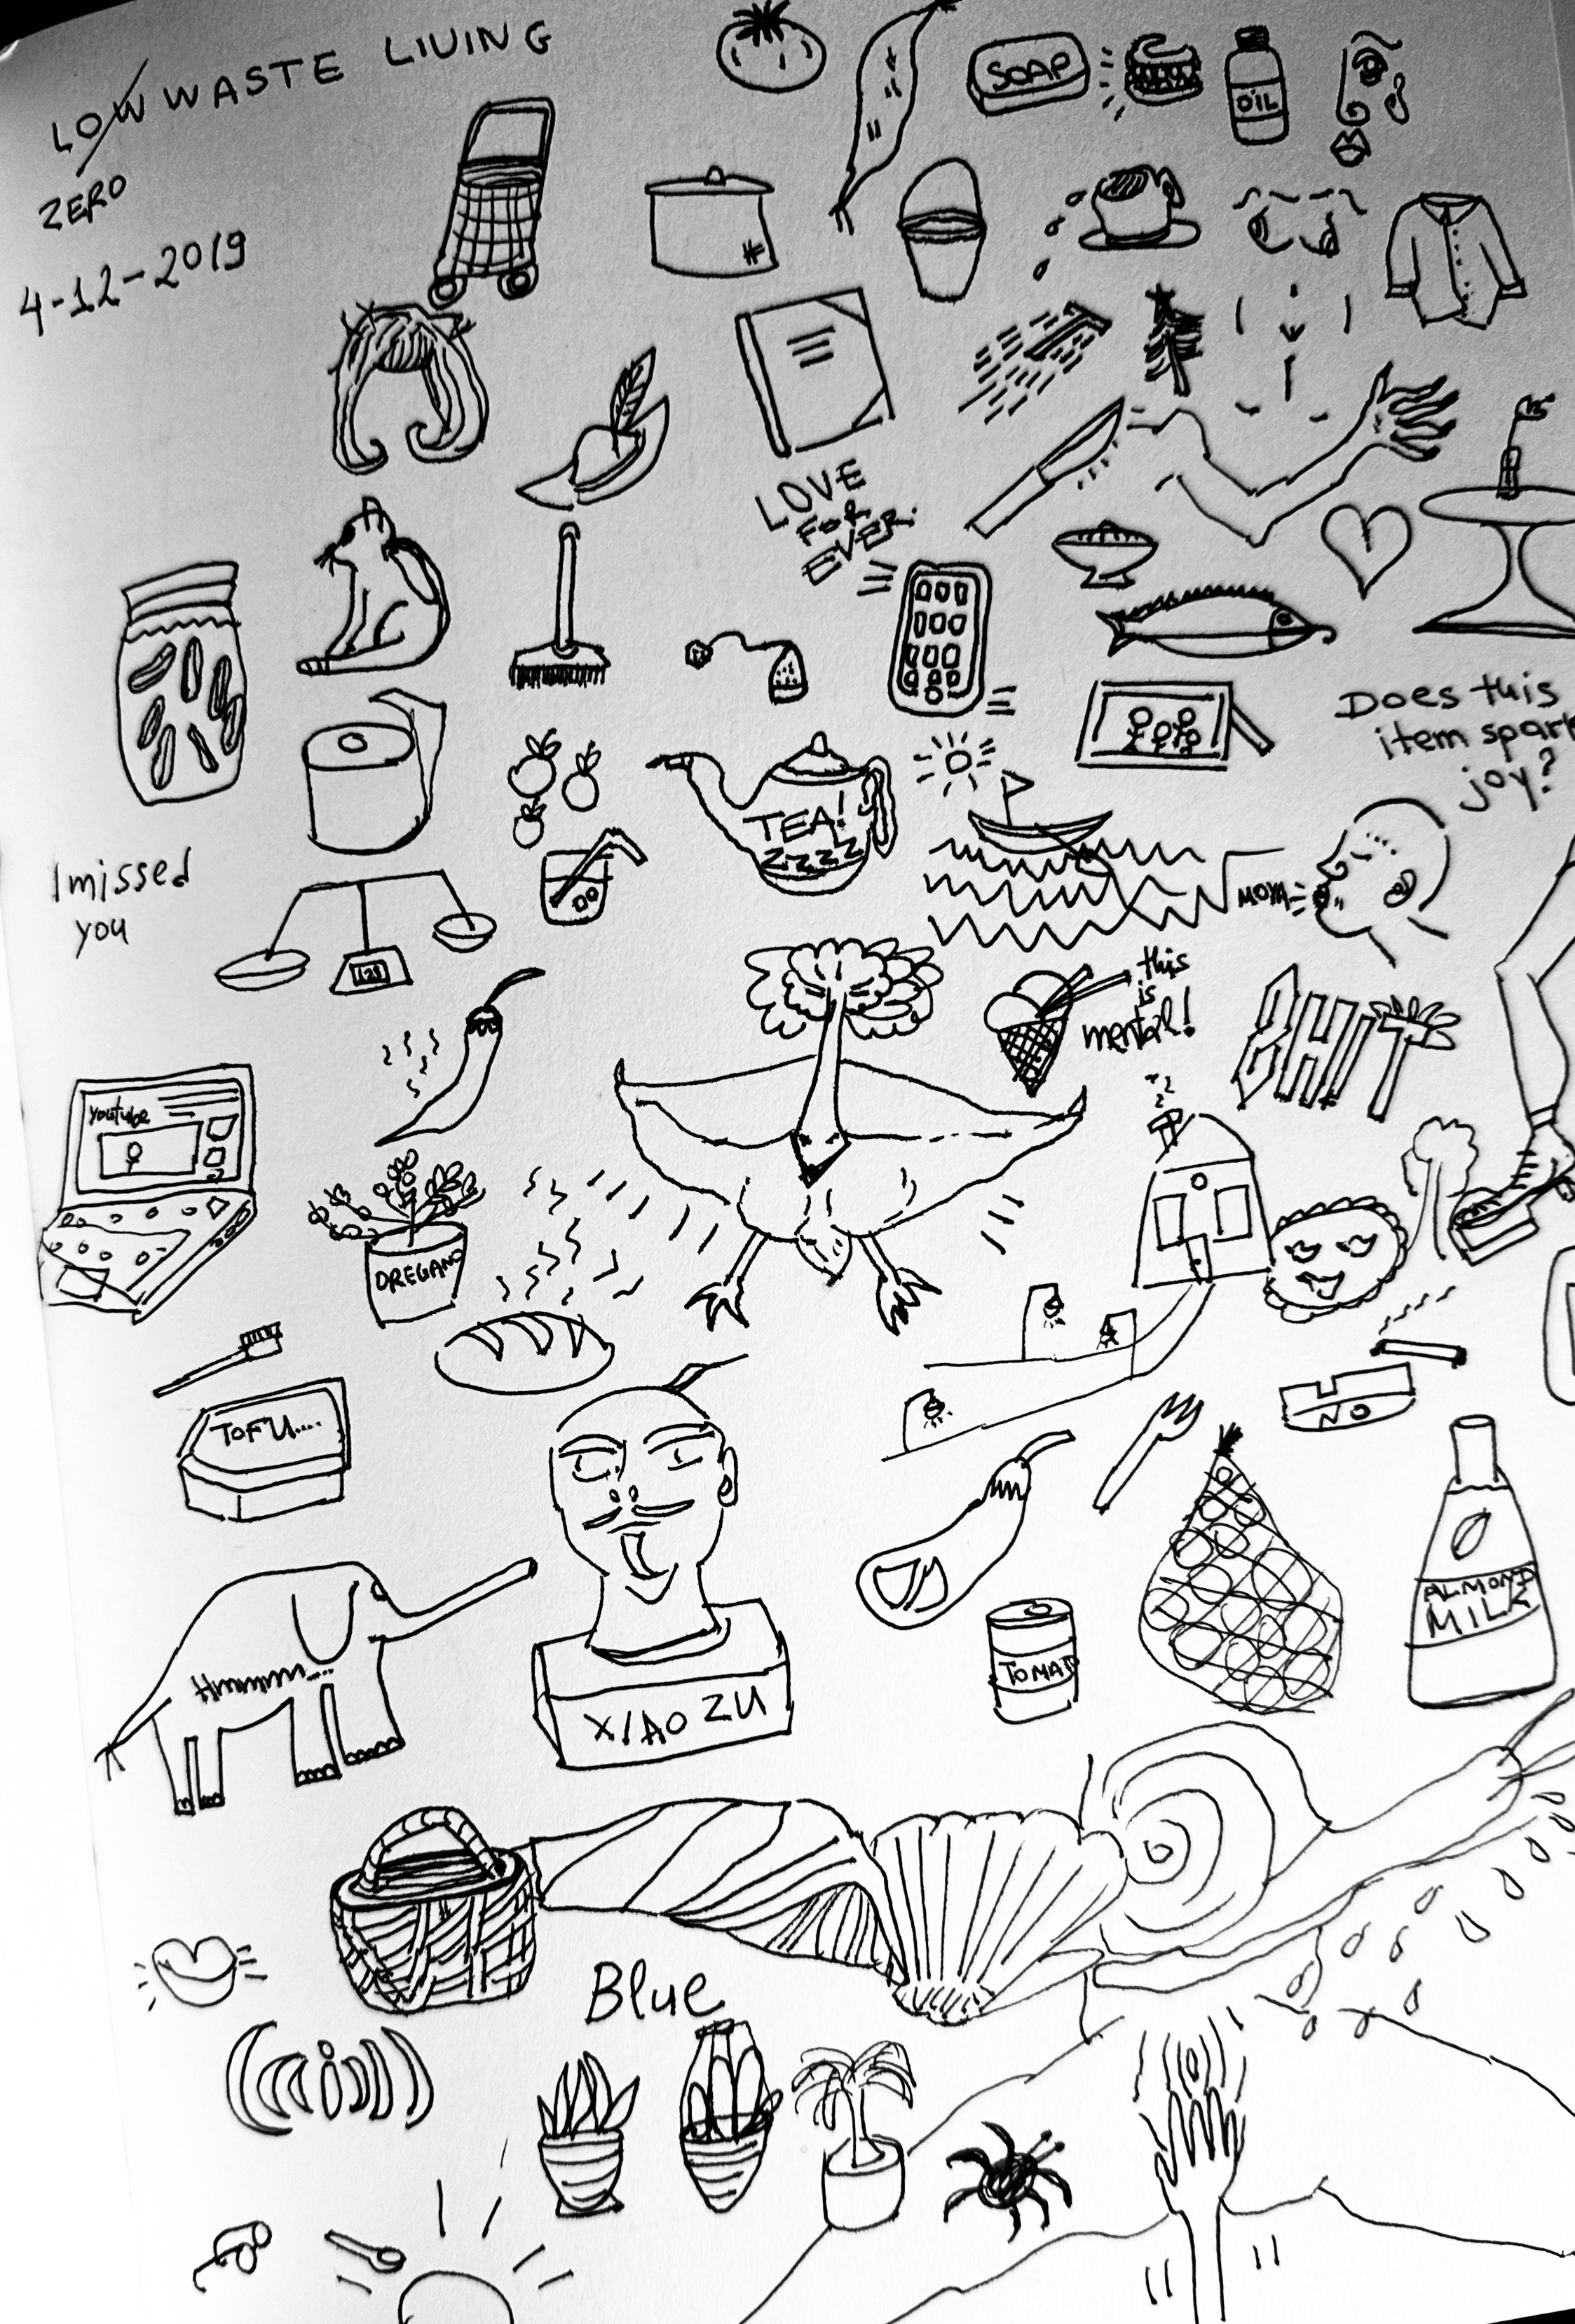 LOW WASTE LIVING
ZERO
4-12-2019
SOAP
OIL
LOVE
FOR
EVER.
Does this
item spark
joy?
TEA!
ZZZZ
I missed
you
120
MOYA
this
is
mental!
youtube
OREGANO
TOFU....
NO
ALMOND
MILK
TOMAT
Hmmmm....
XIAO ZU
Blue